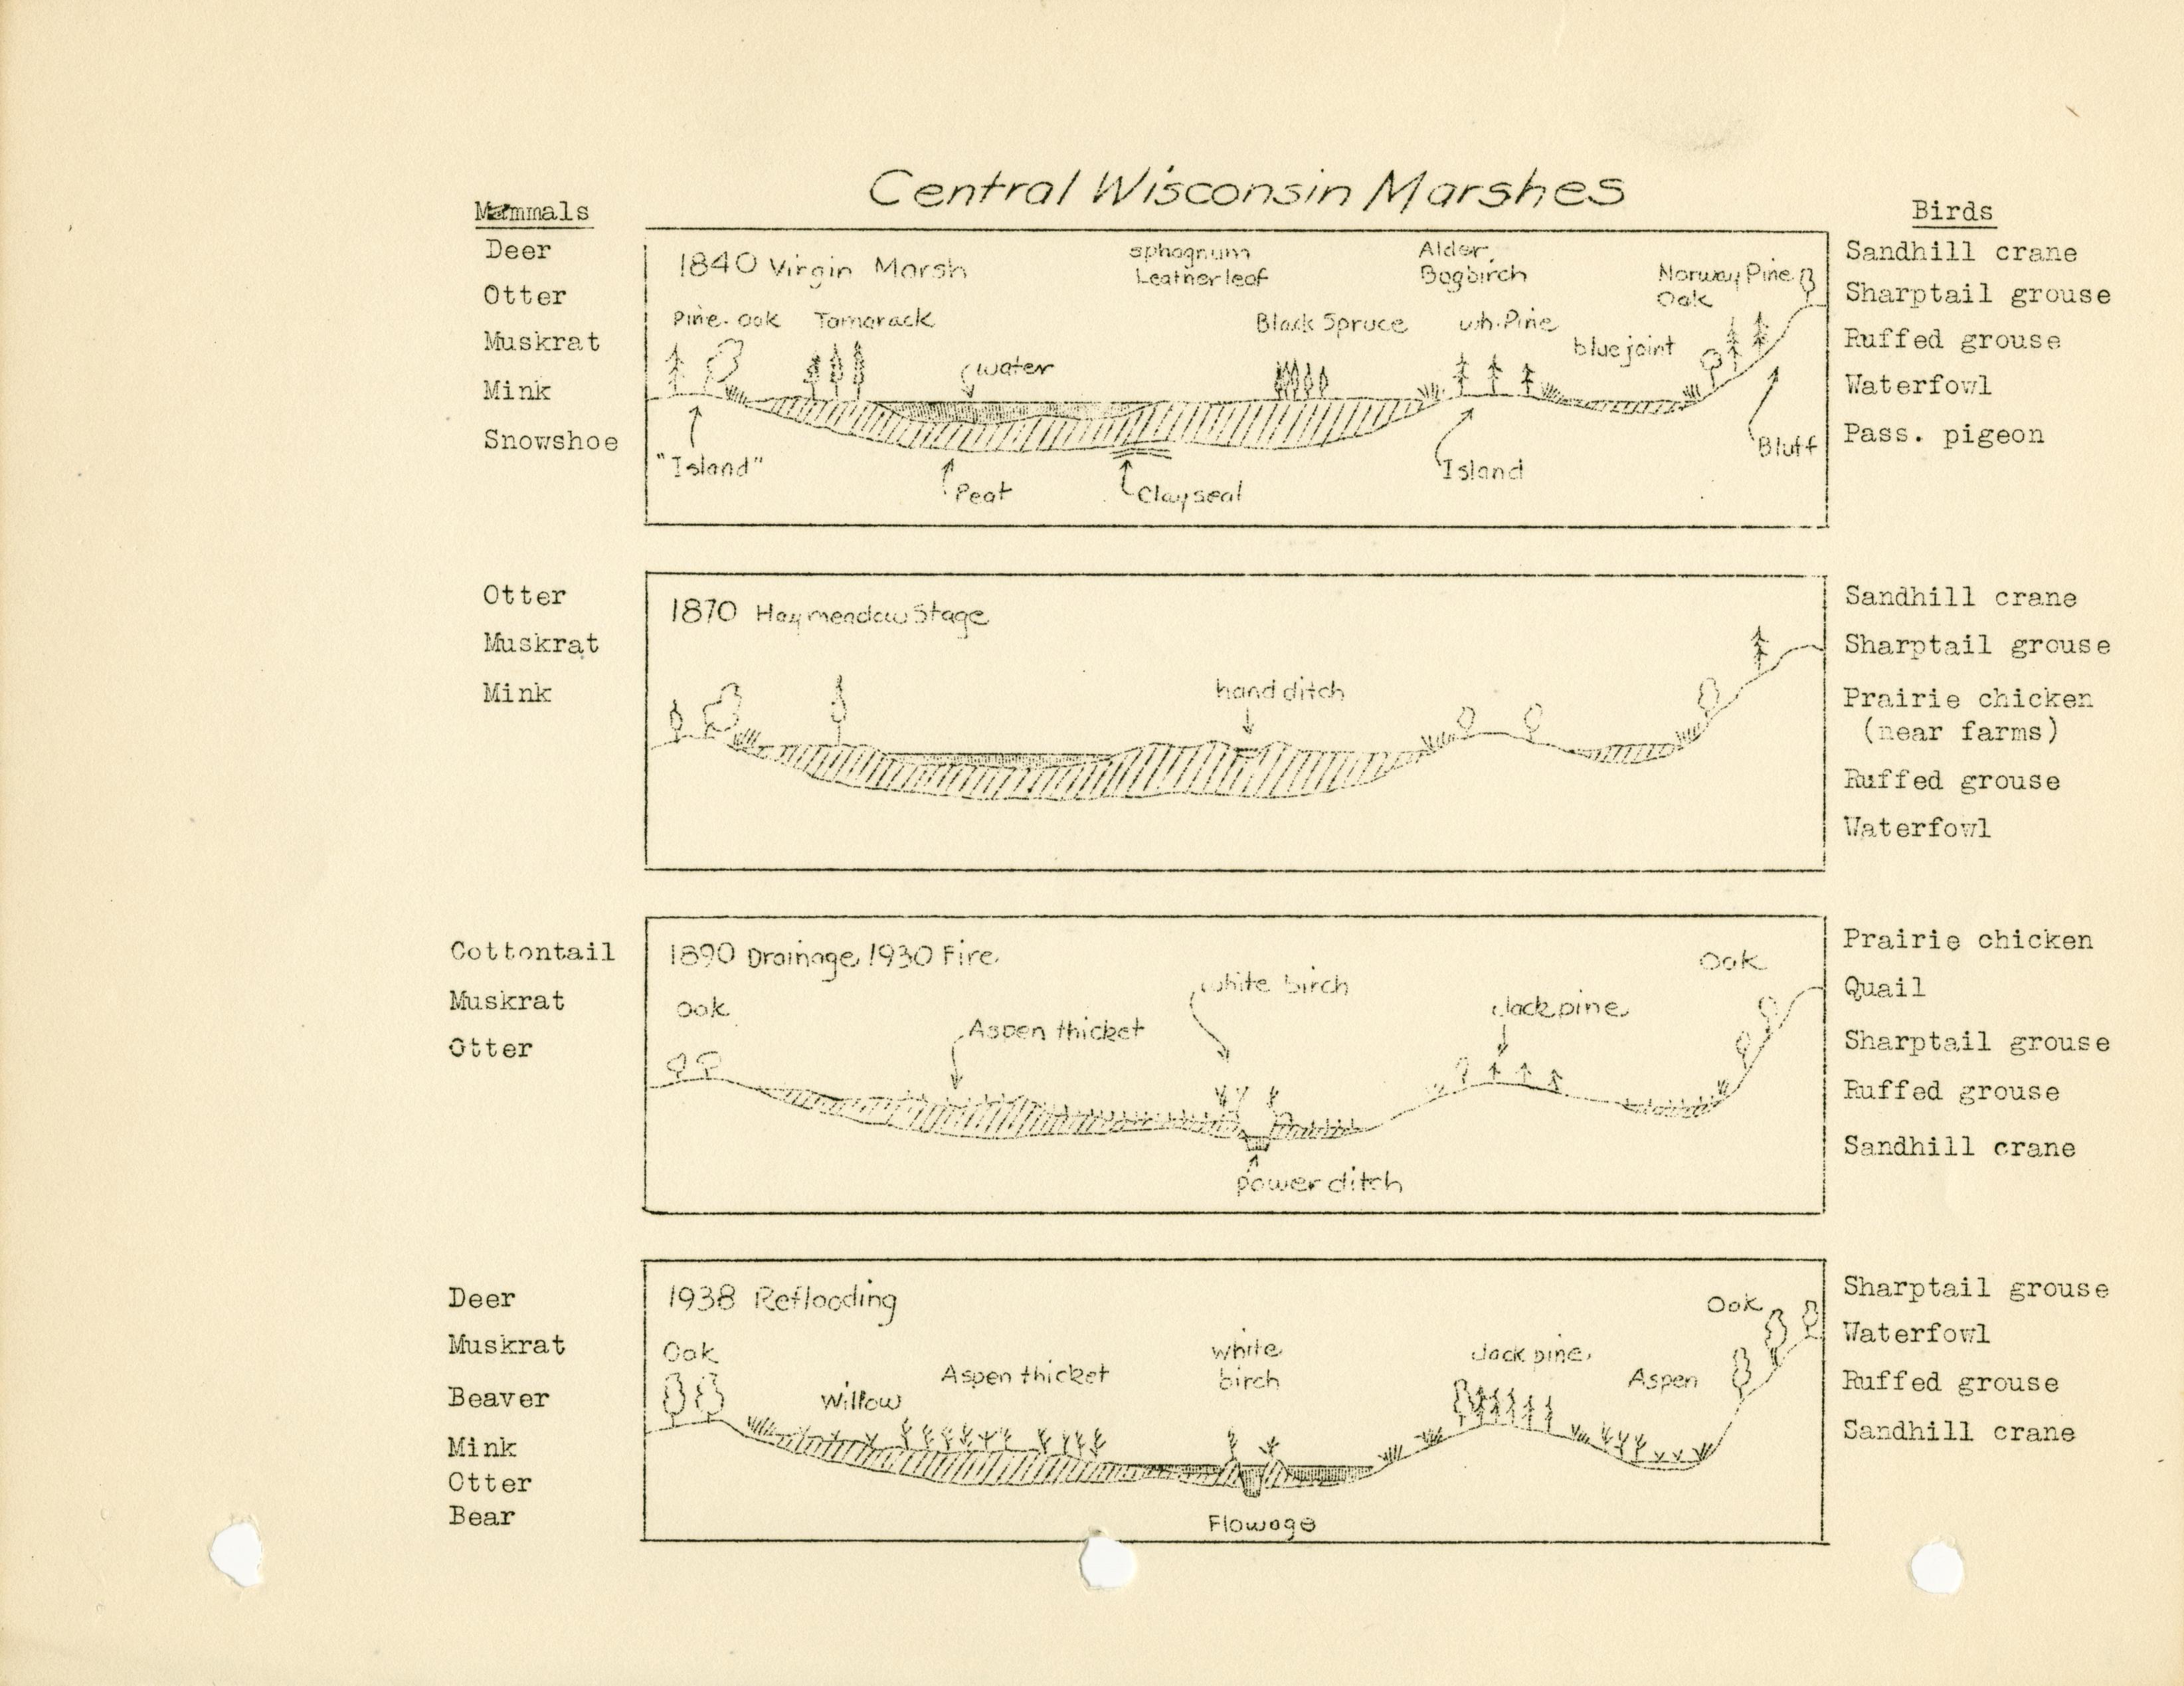 Central Wisconsin Marshes
Mammals
Deer
Otter
Muskrat
Mink
Snowshoe
1840 Virgin Marsh
sphagnum
Leatherleaf
Alder,
Bogbirch
Norway Pine
Oak
Pine-oak
Tamarack
water
Black Spruce
wh. Pine
blue joint
"Island"
Peat
Clay seal
Island
Bluff
Birds
Sandhill crane
Sharptail grouse
Ruffed grouse
Waterfowl
Pass. pigeon
Otter
Muskrat
Mink
1870 Hay meadow Stage
hand ditch
Sandhill crane
Sharptail grouse
Prairie chicken
(near farms)
Ruffed grouse
Waterfowl
Cottontail
Muskrat
Otter
1890 Drainage, 1930 Fire.
Oak
Aspen thicket
white birch
Jack pine
Oak
power ditch
Prairie chicken
Quail
Sharptail grouse
Ruffed grouse
Sandhill crane
Deer
Muskrat
Beaver
Mink
Otter
Bear
1938 Reflooding
Oak
Willow
Aspen thicket
white
birch
Jack pine
Aspen
Oak
Flowage
Sharptail grouse
Waterfowl
Ruffed grouse
Sandhill crane